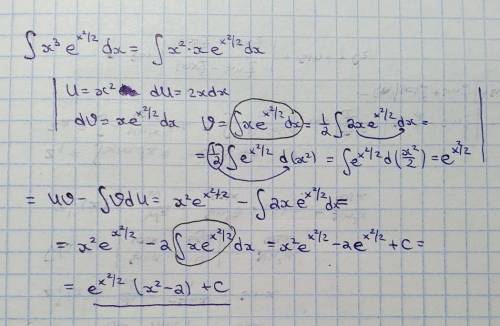 ∫ x³ e^(x²/2) dx = ∫ x² · x e^(x²/2) dx
U = x² dU = 2x dx
dV = x e^(x²/2) dx V = ∫ x e^(x²/2) dx = 1/2 ∫ 2x e^(x²/2) dx =
= 1/2 ∫ e^(x²/2) d(x²) = ∫ e^(x²/2) d(x²/2) = e^(x²/2)
= UV - ∫ V dU = x² e^(x²/2) - ∫ 2x e^(x²/2) dx =
= x² e^(x²/2) - 2 ∫ x e^(x²/2) dx = x² e^(x²/2) - 2e^(x²/2) + C =
= e^(x²/2) (x² - 2) + C